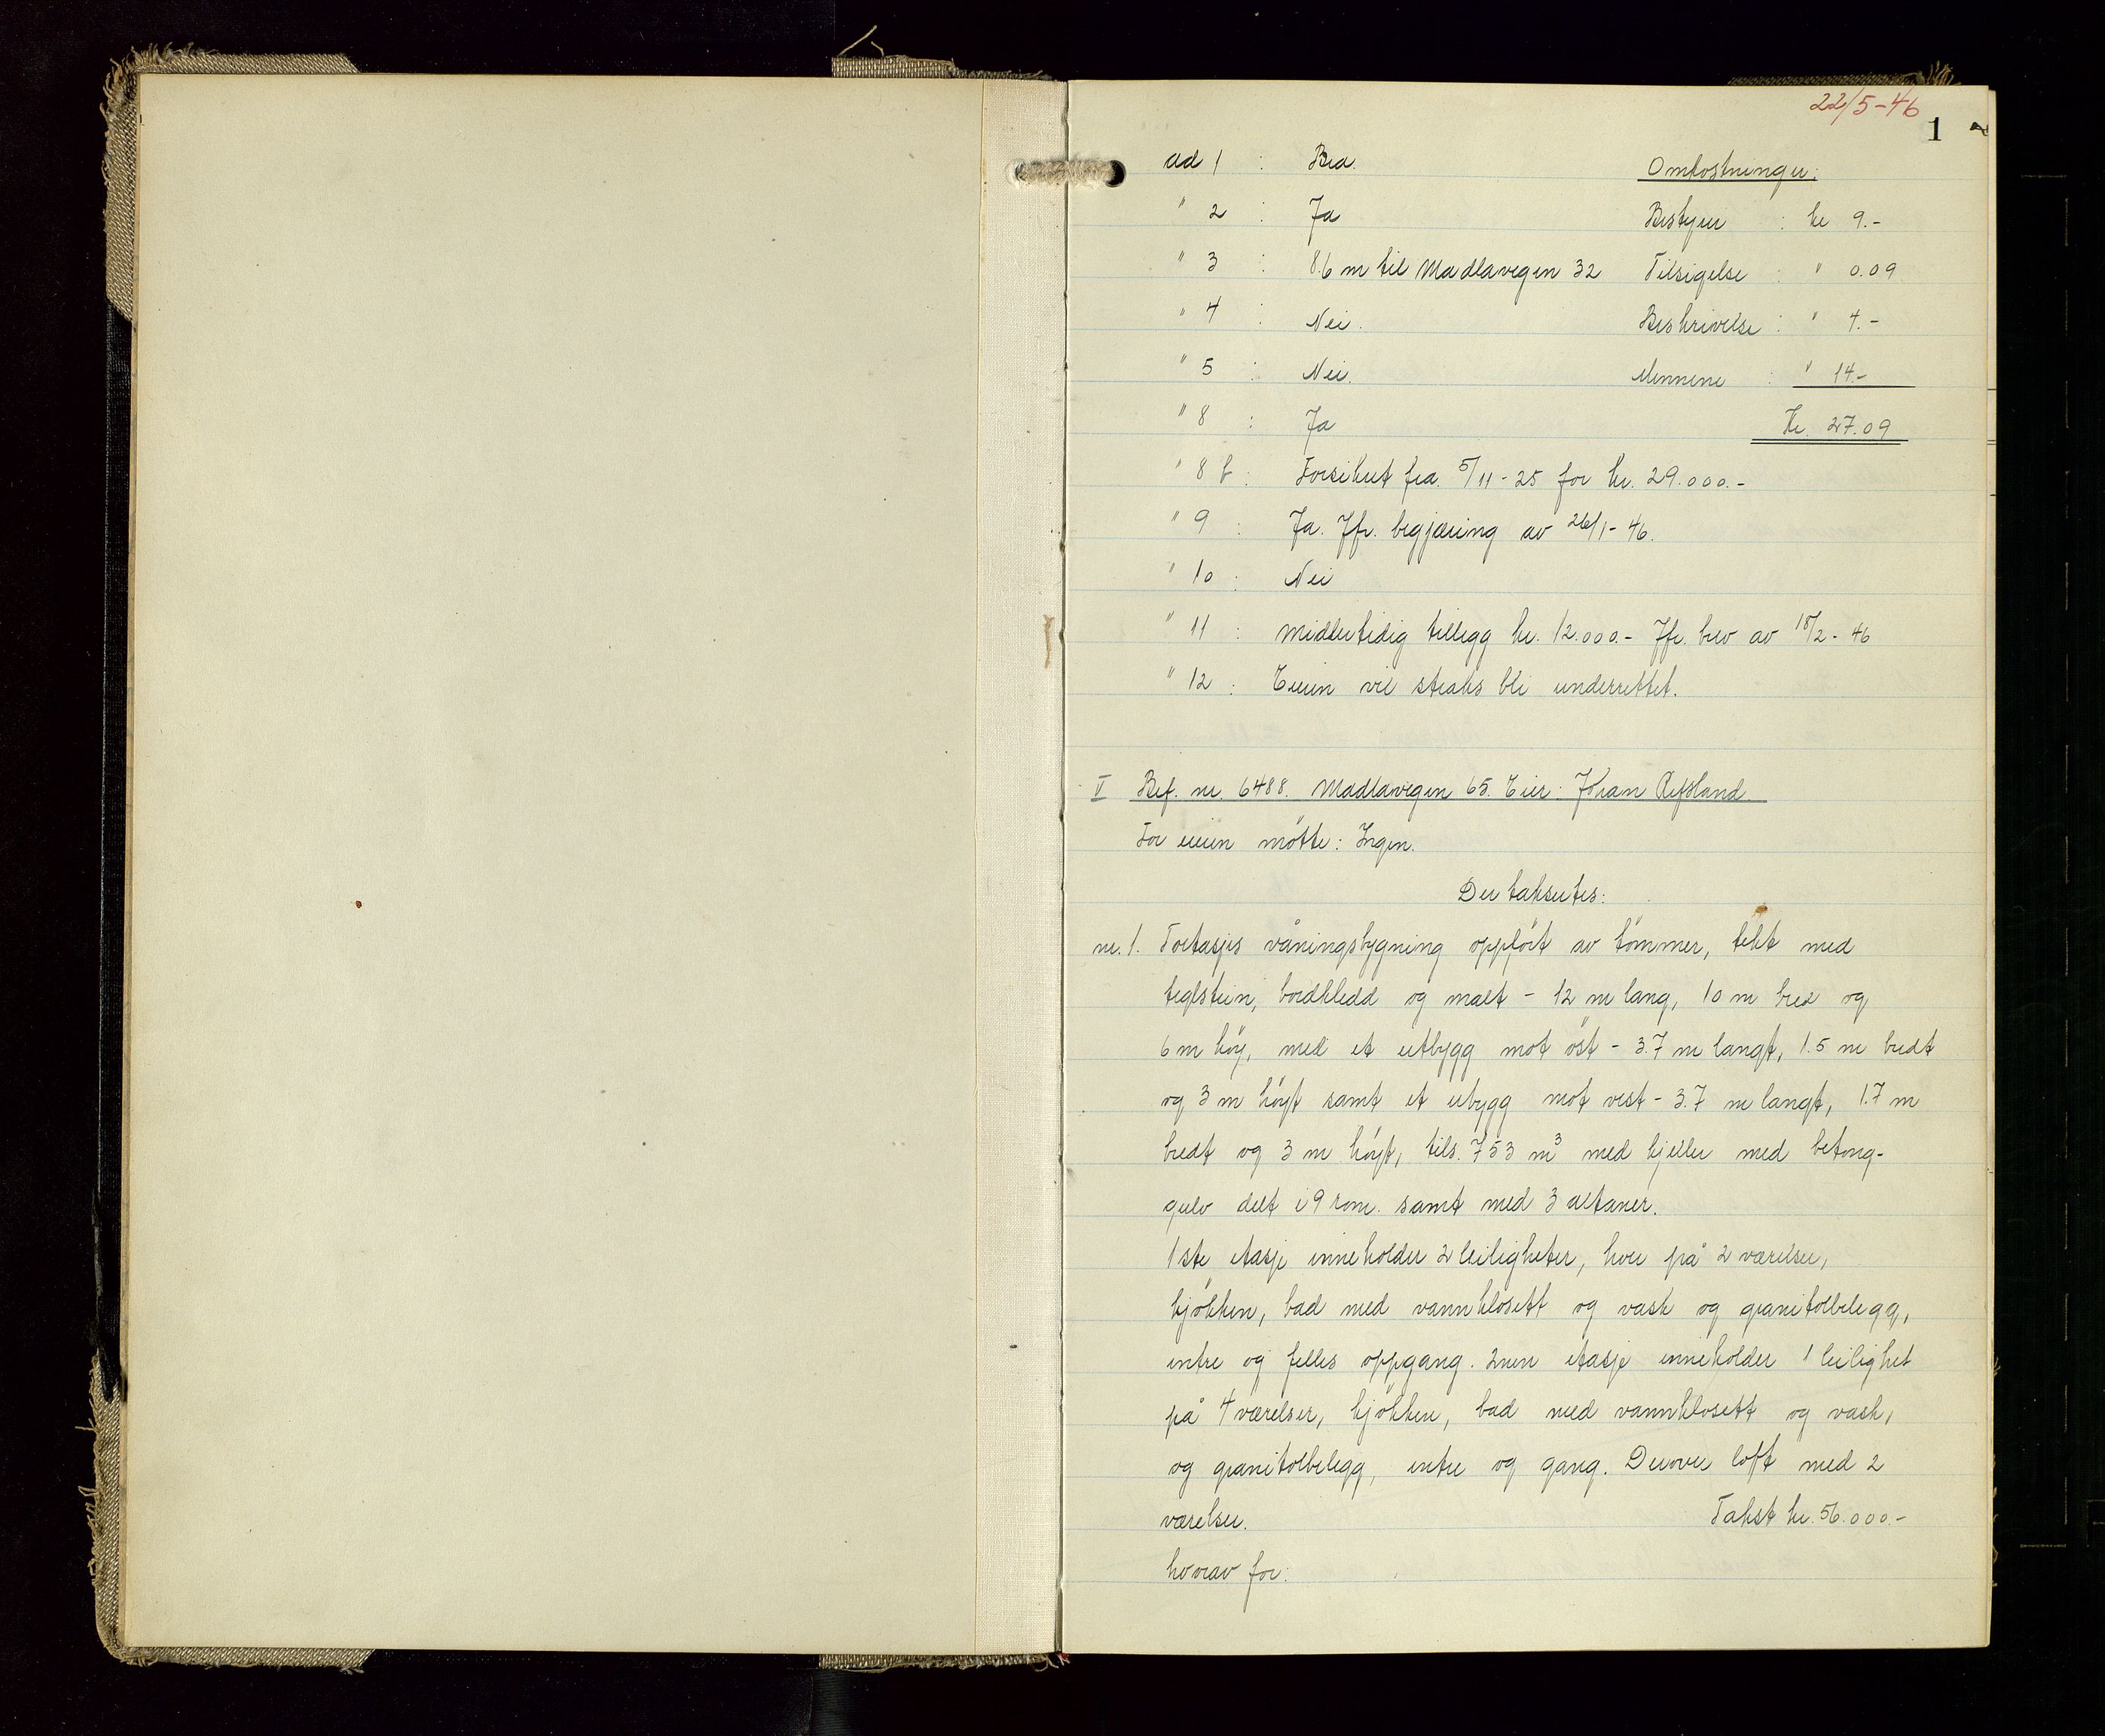 22/5-46
1
ad 1 : Bra. Omkostninger:
" 2 : Ja Bestyrer : kr 9.-
" 3 : 8.6 m til Madlavegen 32 Tilsigelse : " 0.09
" 4 : Nei. Beskrivelse : " 4.-
" 5 : Nei. Mennene : " 14.-
" 8 : Ja Kr. 27.09
" 8 b : Forsikret fra 5/11-25 for kr. 29.000.-
" 9 : Ja. Jfr. begjæring av 26/1-46.
" 10 : Nei
" 11 : Midlertidig tillegg kr. 12.000.- Jfr. brev av 18/2-46
" 12 : Eieren vil straks bli underrettet.
V Bef. nr. 6488. Madlavegen 65. Eier: Johan Refsland
For eieren mötte: Ingen.
Der taksertes:
nr. 1. Toetasjes våningsbygning oppfört av tömmer, tekt med
teglstein, bordkledd og malt - 12 m lang, 10 m bred og
6 m höy, med et utbygg mot öst - 3.7 m langt, 1.5 m bredt
og 3 m höyt samt et utbygg mot vest - 3.7 m langt, 1.7 m
bredt og 3 m höyt, tils. 753 m³ med kjeller med betong-
gulv delt i 9 rom. samt med 3 altaner.
1ste etasje inneholder 2 leiligheter, hver på 2 værelser,
kjökken, bad med vannklosett og vask og granitolbelegg,
entre og felles oppgang. 2nen etasje inneholder 1 leilighet
på 4 værelser, kjökken, bad med vannklosett og vask,
og granitolbelegg, entre og gang. Derover loft med 2
værelser. Takst kr. 56.000.-
hvorav for: